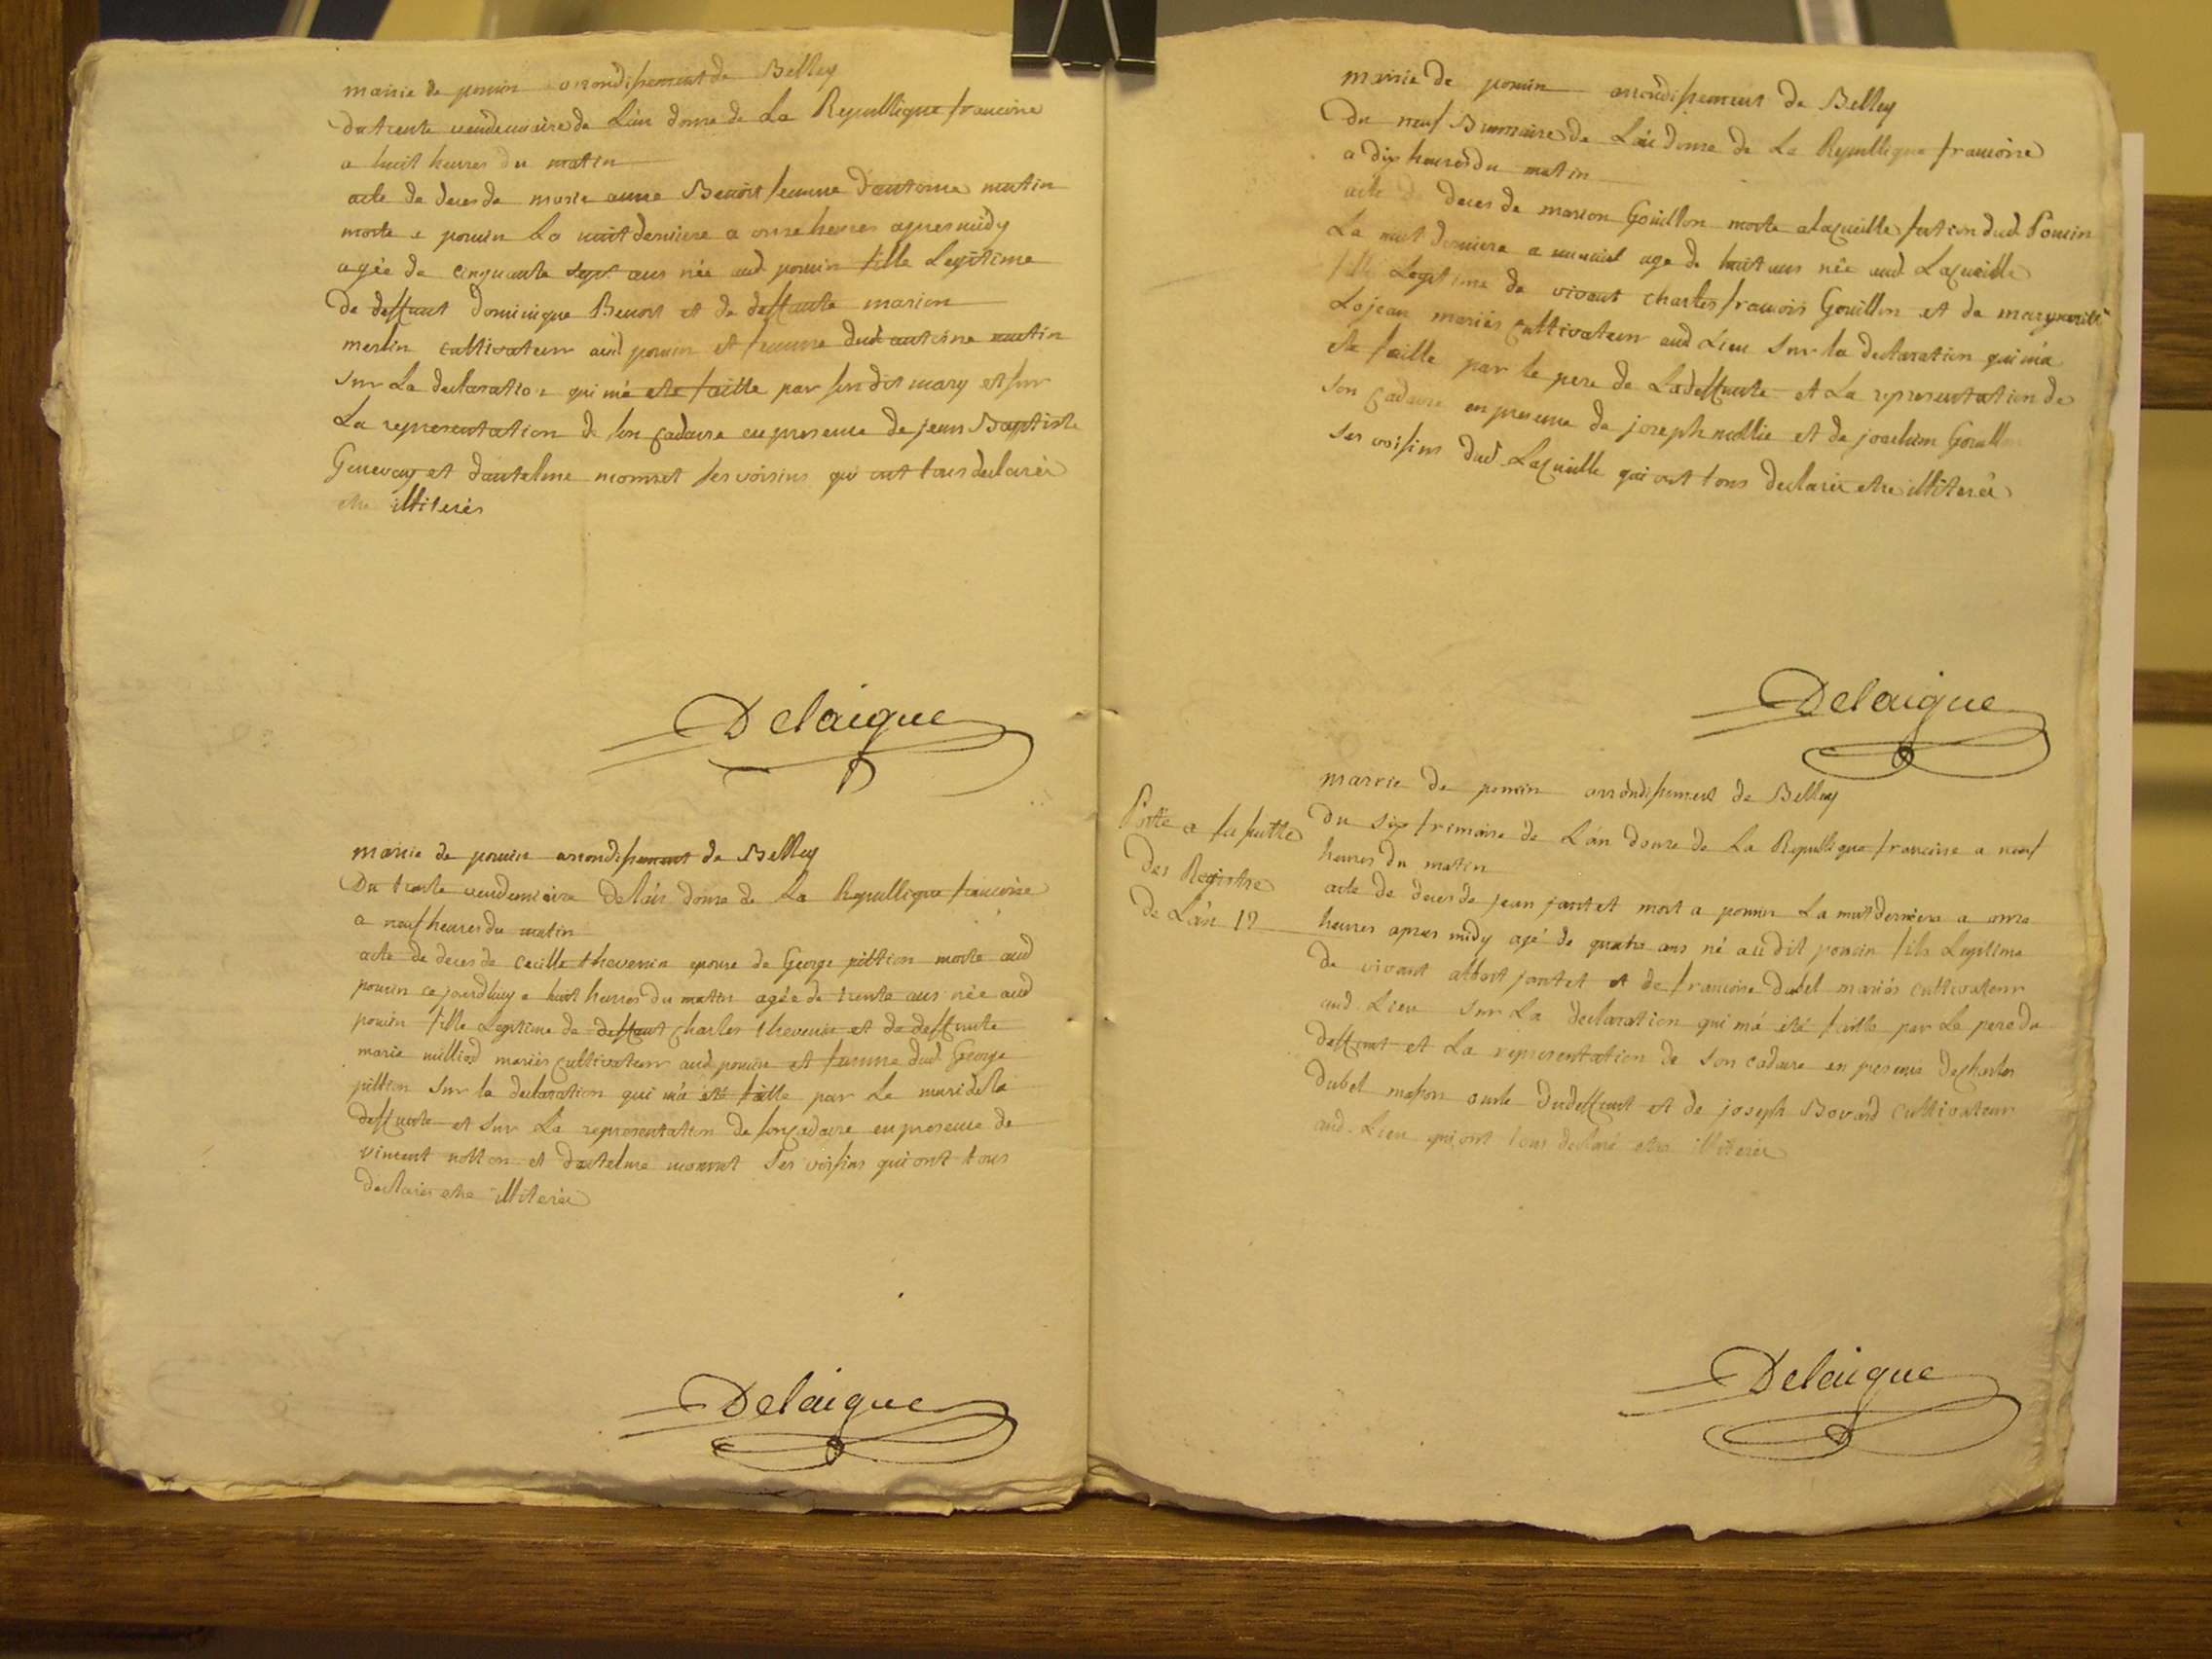 mairie de poncin arondissement de Belley
du trente vendemiaire de Lan douze de La Republique francoise
a huit heures du matin
acte de deces de marie anne Benoit femme dantoine mutin
morte a poncin La nuit derniere a onze heures apres midy
agée de cinquante sept ans née aud poncin fille Legitime
de deffunt dominique Benoit et de deffunte marion
merlin cultivateur aud poncin et femme dud antoine mutin
sur La declaration qui ma ete faitte par son dit mary et sur
La representation de son cadavre en presence de jean Baptiste
Genevay et dantelme momet ses voisins qui ont tous declarés
etre illiterés
Delaigue
mairie de poncin arondissement de Belley
Du trente vendemiaire de Lan douze de La Republique francoise
a neuf heures du matin
acte de deces de cecille thevenin epouse de George pittion morte aud
poncin ce jourdhuy a huit heures du matin agée de trente ans née aud
poncin fille Legitime de deffunt charles thevenin et de deffunte
marie milliod mariés cultivateur aud poncin et femme dud George
pittion sur la declaration qui má été faitte par Le mari de la
deffunte et sur La representation de son cadavre en presence de
vincent notton et dantelme momet ses voisins qui ont tous
declarés etre illiterés
Delaigue
mairie de poncin arrondissement de Belley
Du neuf Brumaire de Lan douze de La Republique francoise
a dix heures du matin
acte de deces de marion Gouillon morte a Lacueille section dud Poncin
La nuit derniere a minuit age de huit ans née aud Lacueille
fille Legitime de vivant charles francois Gouillon et de marguerite
Lajean mariés cultivateur aud Lieu sur la declaration qui ma
ete faitte par le pere de La deffunte et La representation de
son cadavre en presence de joseph mollie et de joachim Gouillon
ses voisins dud Lacueille qui ont tous declarés etre illiterés
Delaigue
Porté a la suitte
des Registre
de Lán 12
mairie de poncin arrondissement de Belley
Du six frimaire de Lán douze de La Republique francoise a neuf
heures du matin
acte de deces de jean jantet mort a poncin La nuit derniere a onze
heures apres midy agé de quatre ans né audit poncin fils Legitime
de vivant albert jantet et de francoise dubel mariés cultivateur
aud. Lieu sur La declaration qui má été faitte par Le pere du
deffunt et La representation de son cadavre en presence de charles
dubel masson oncle du deffunt et de joseph Bovard cultivateur
aud. Lieu qui ont tous declaré etre illiterés
Delaigue